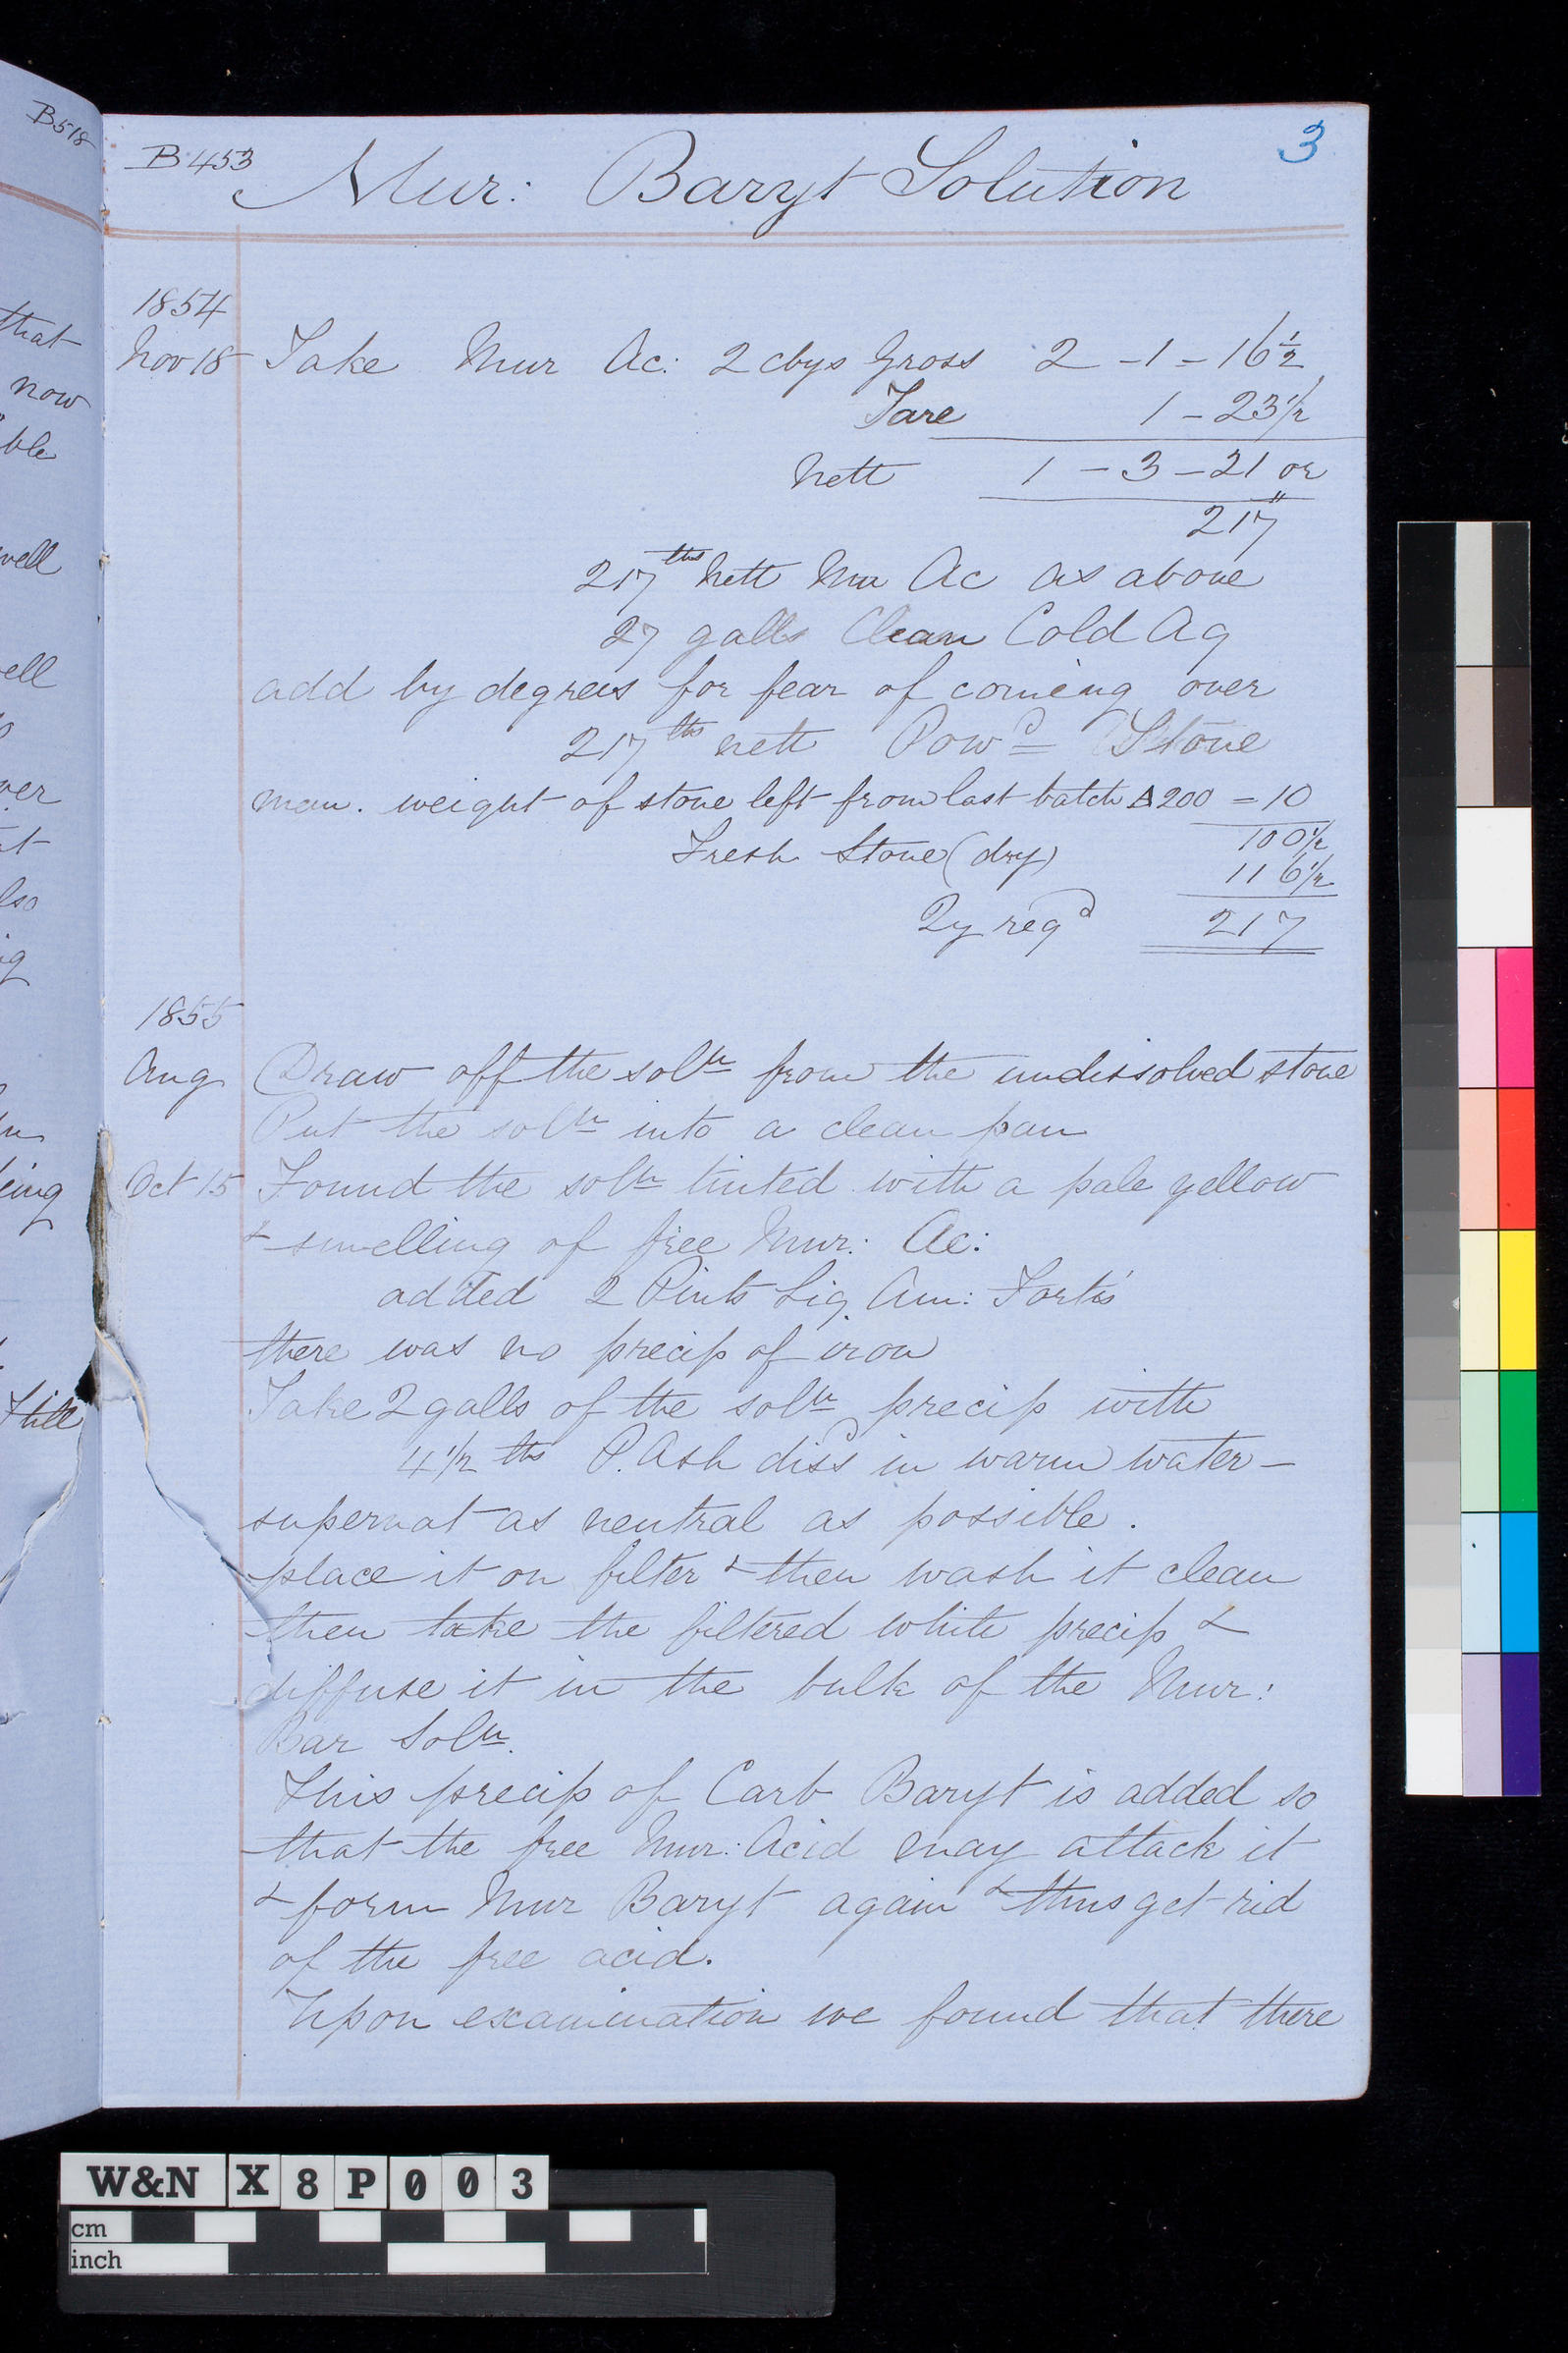 B518
that
now
ble
well
ell
ver
t
lso
ing
Still
B453
3
Mur: Baryt Solution
1854
Nov 18 Take Mur Ac: 2 cbys Gross 2 - 1 - 16 1/2
Tare 1 - 23 1/2
Nett 1 - 3 - 21 or
217"
217 lbs Nett Mur Ac as above
27 galls Clean Cold Aq
add by degrees for fear of comeing over
217 lbs nett Powd Stone
mem. weight of stone left from last batch Δ200 = 10
100 1/2
Fresh Stone (dry) 116 1/2
Qy reqd 217
1855
Aug Draw off the soltn from the undissolved stone
Put the soltn into a clean pan
Oct 15 Found the soltn tinted with a pale yellow
& smelling of free Mur: Ac:
added 2 Pints Liq. Am: Fortis
there was no precip of iron
Take 2 galls of the soltn precip with
4 1/2 lbs P. Ash dissd in warm water -
supernat as neutral as possible.
place it on filter & then wash it clean
then take the filtered white precip &
diffuse it in the bulk of the Mur:
Bar Soln.
This precip of Carb Baryt is added so
that the free Mur: Acid may attack it
& form Mur Baryt again & thus get rid
of the free acid.
Upon examination we found that there
W&N X8P003
cm
inch